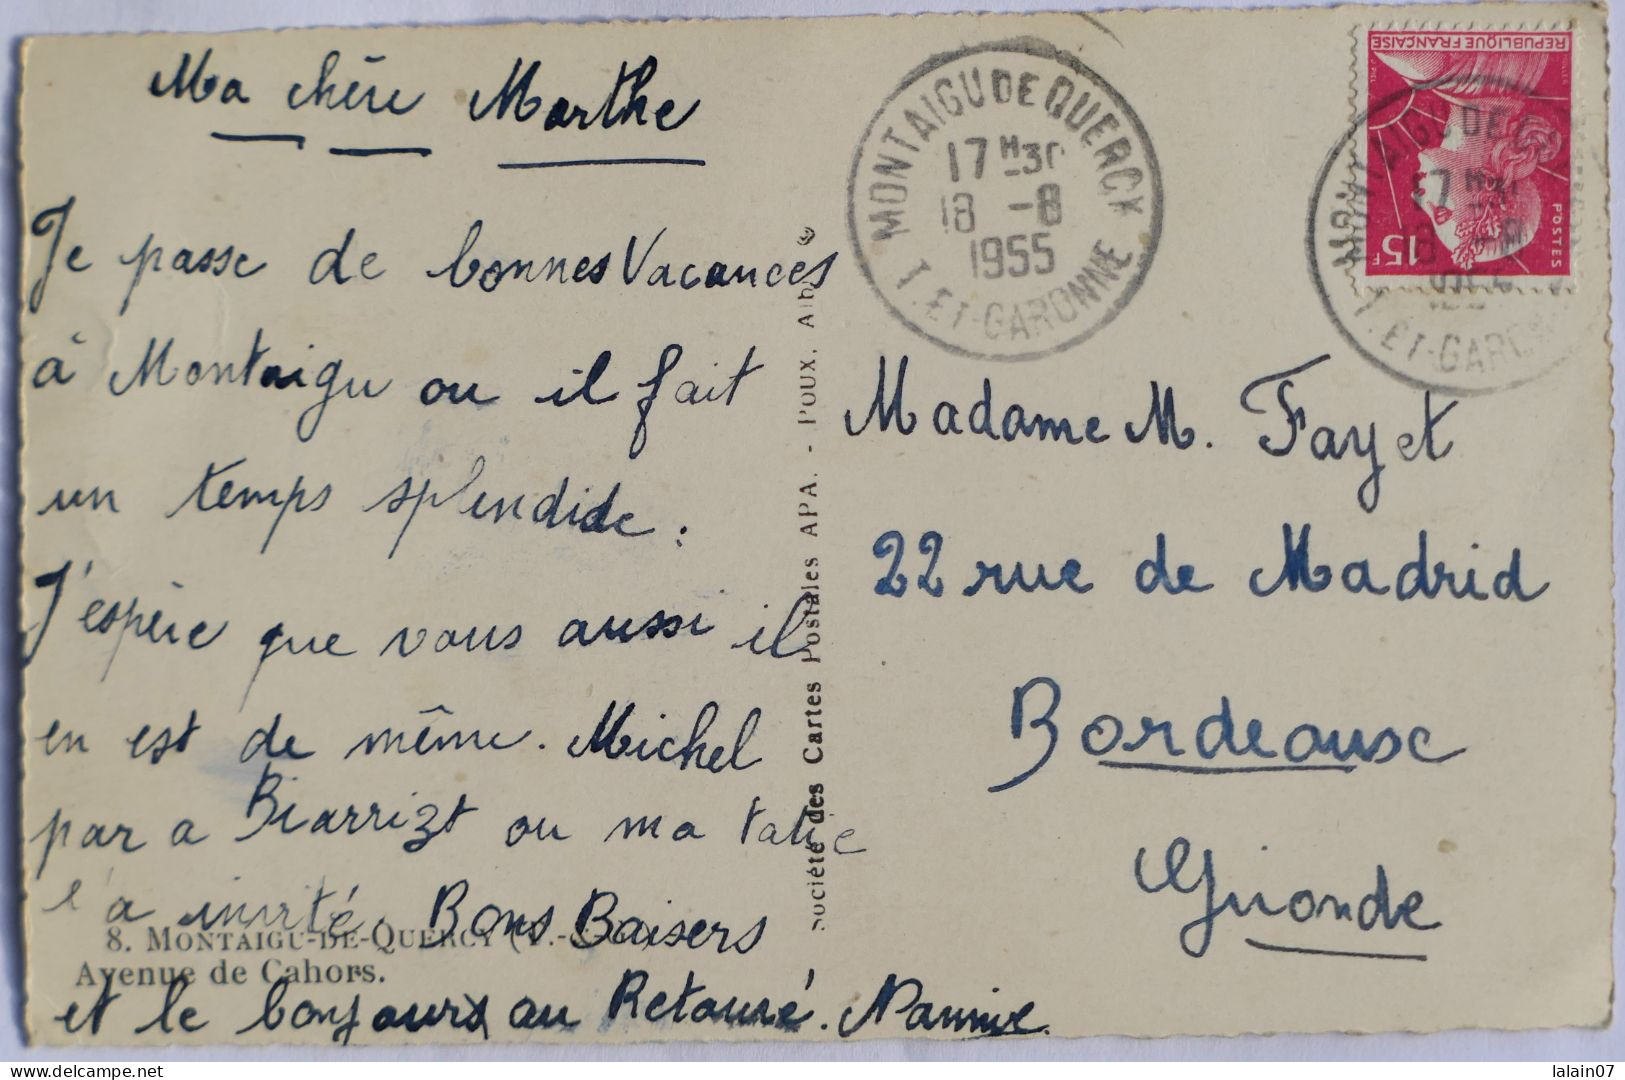 Ma chère Marthe
Je passe de bonnes Vacances
à Montaigu ou il fait
un temps splendide.
J'espère que vous aussi il
en est de même. Michel
par a Biarrizt ou ma tatie
l'a invité. Bons Baisers
et le bonjour au Retouré.
8. MONTAIGU-DE-QUERCY
Avenue de Cahors.
Société des Cartes Postales APA. - POUX, Albi
MONTAIGU DE QUERCY
17 H30
18 -8
1955
T.ET-GARONNE
REPUBLIQUE FRANÇAISE
POSTES
15F
MONTAIGU DE
17 H3
18 -8
T.ET-GARONN
Madame M. Fayet
22 rue de Madrid
Bordeaux
Gironde
lalain07